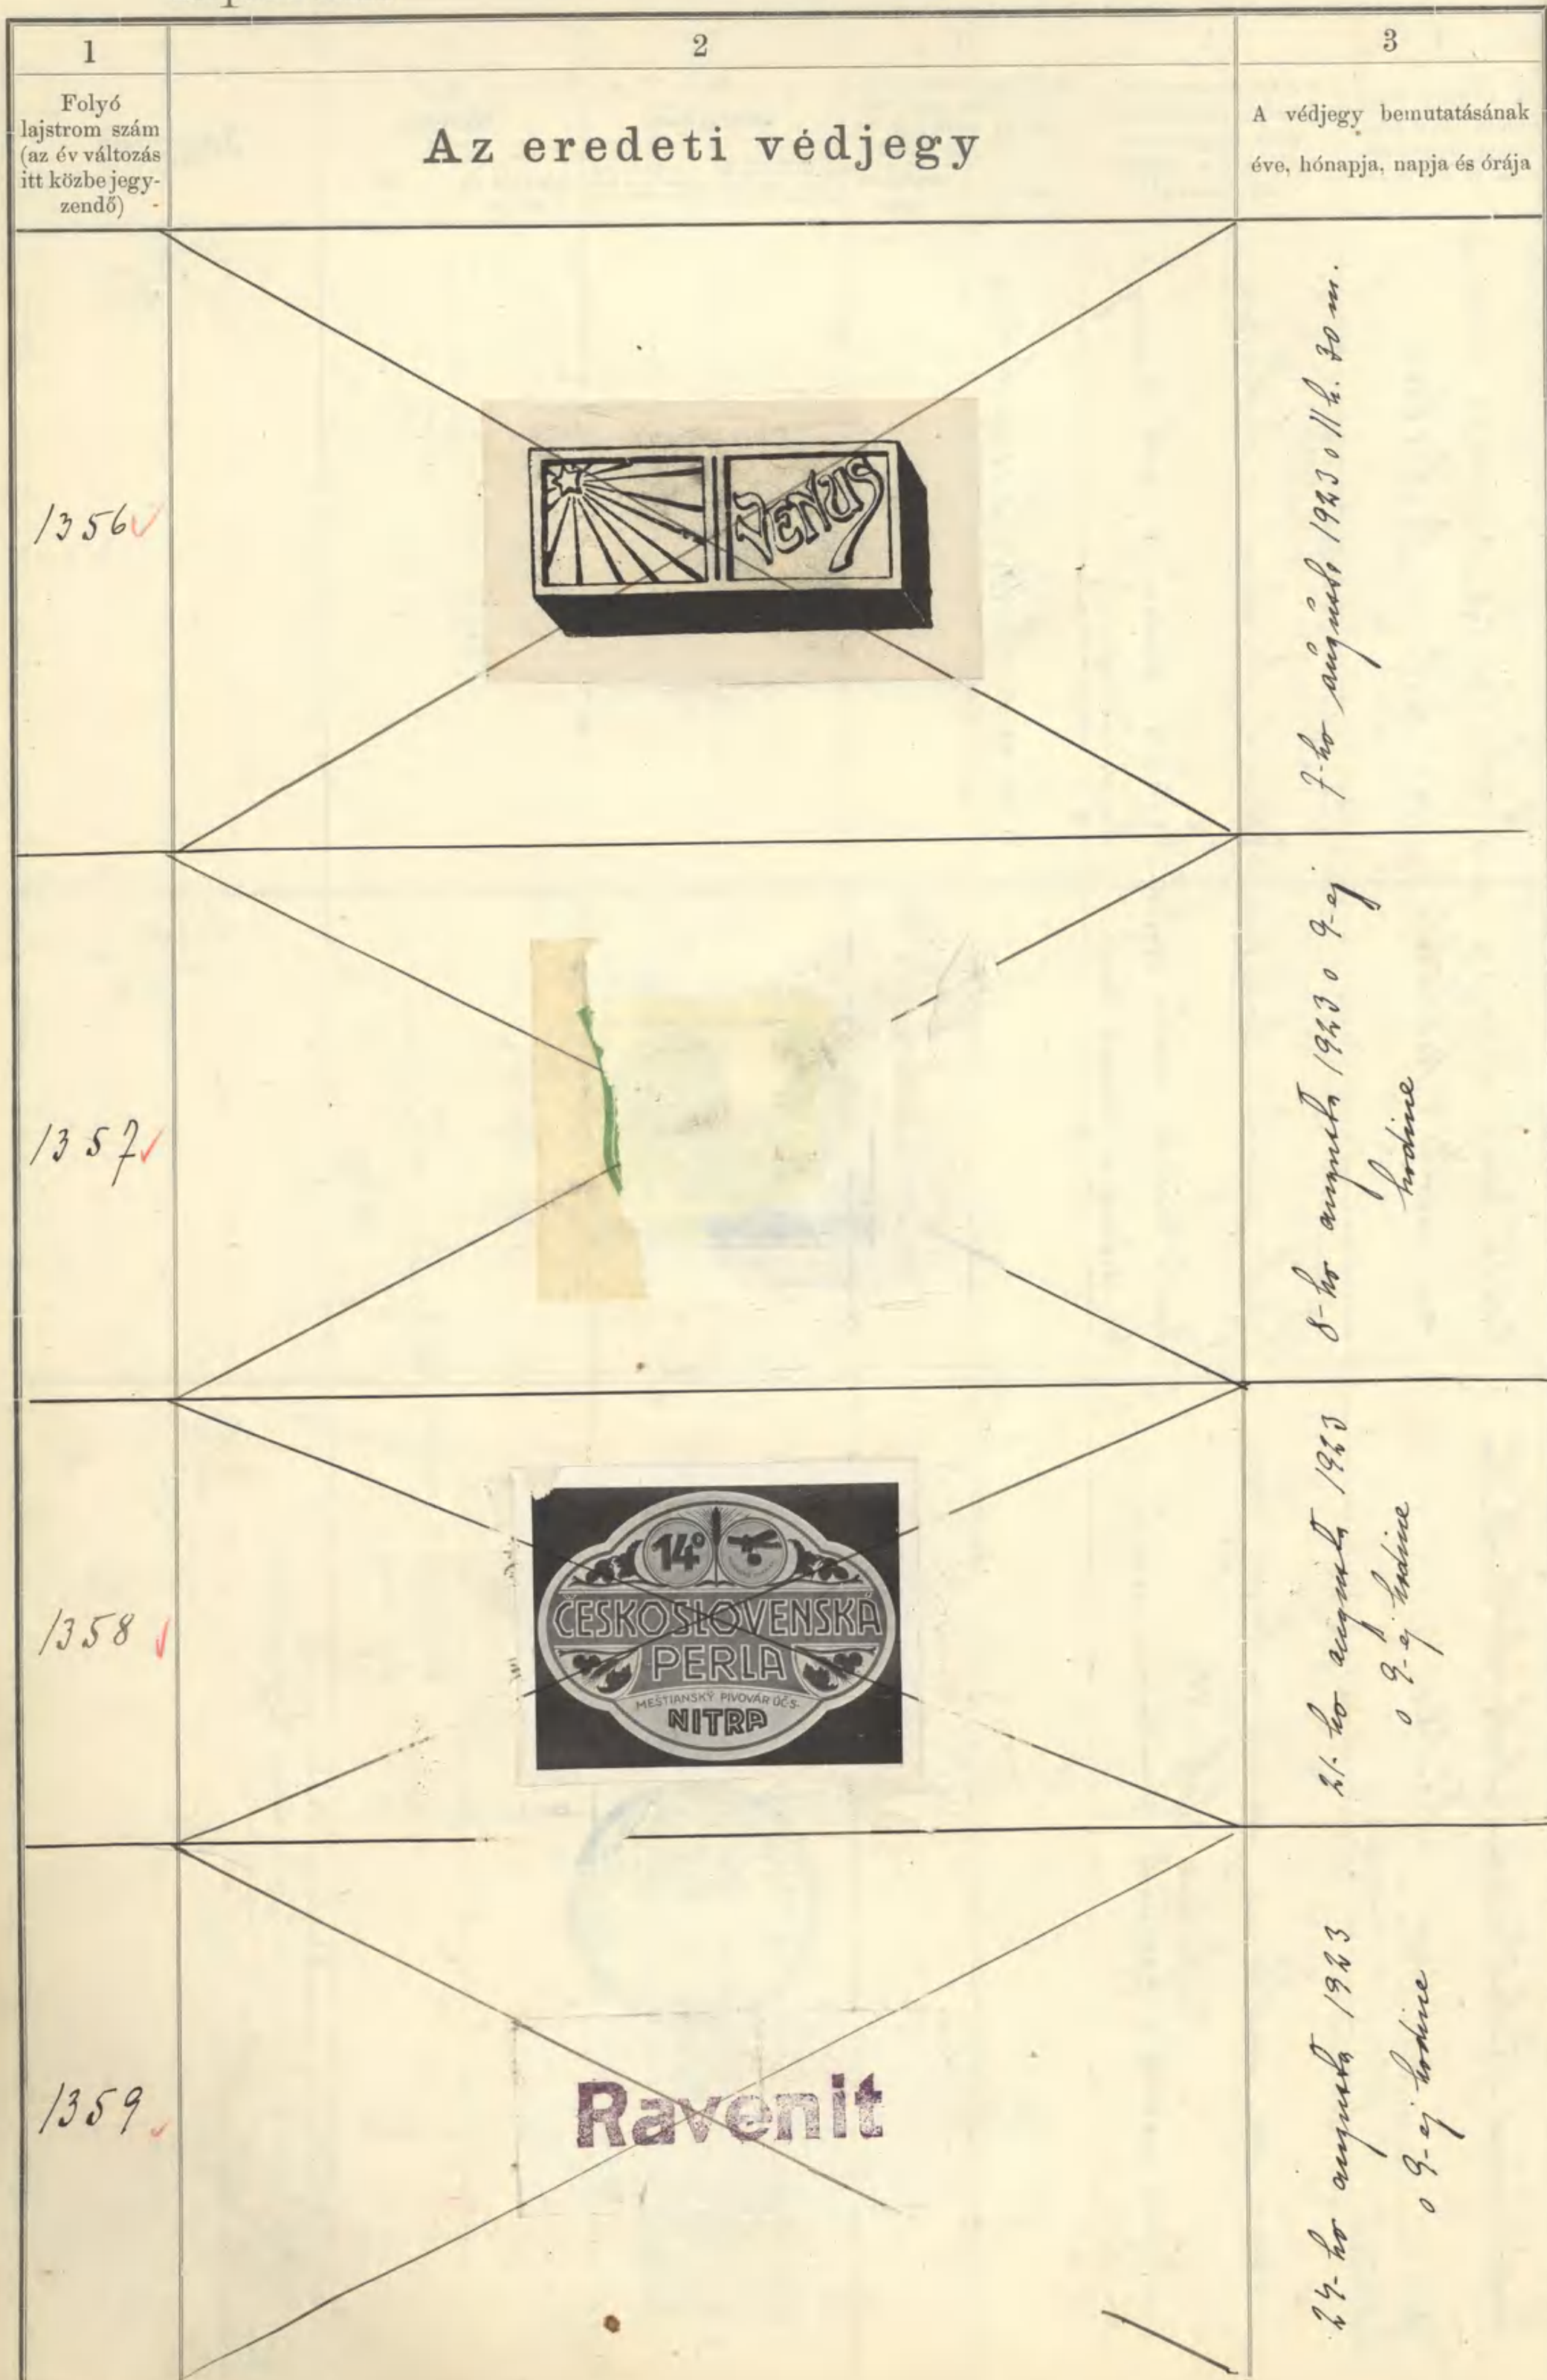 1
2
3
Folyó
lajstrom szám
(az év változás
itt közbe jegy-
zendő)
Az eredeti védjegy
A védjegy bemutatásának
éve, hónapja, napja és órája
1356
VENUS
7-ho augusta 1923 o 11 h. 30 m.
1357
8-ho augusta 1923 o 9-ej
hodine
1358
14°
ČESKOSLOVENSKÁ
PERLA
MEŠTIANSKÝ PIVOVÁR ÚČ.S.
NITRA
21-ho augusta 1923
o 9-ej hodine
1359
Ravenit
24-ho augusta 1923
o 9-ej hodine